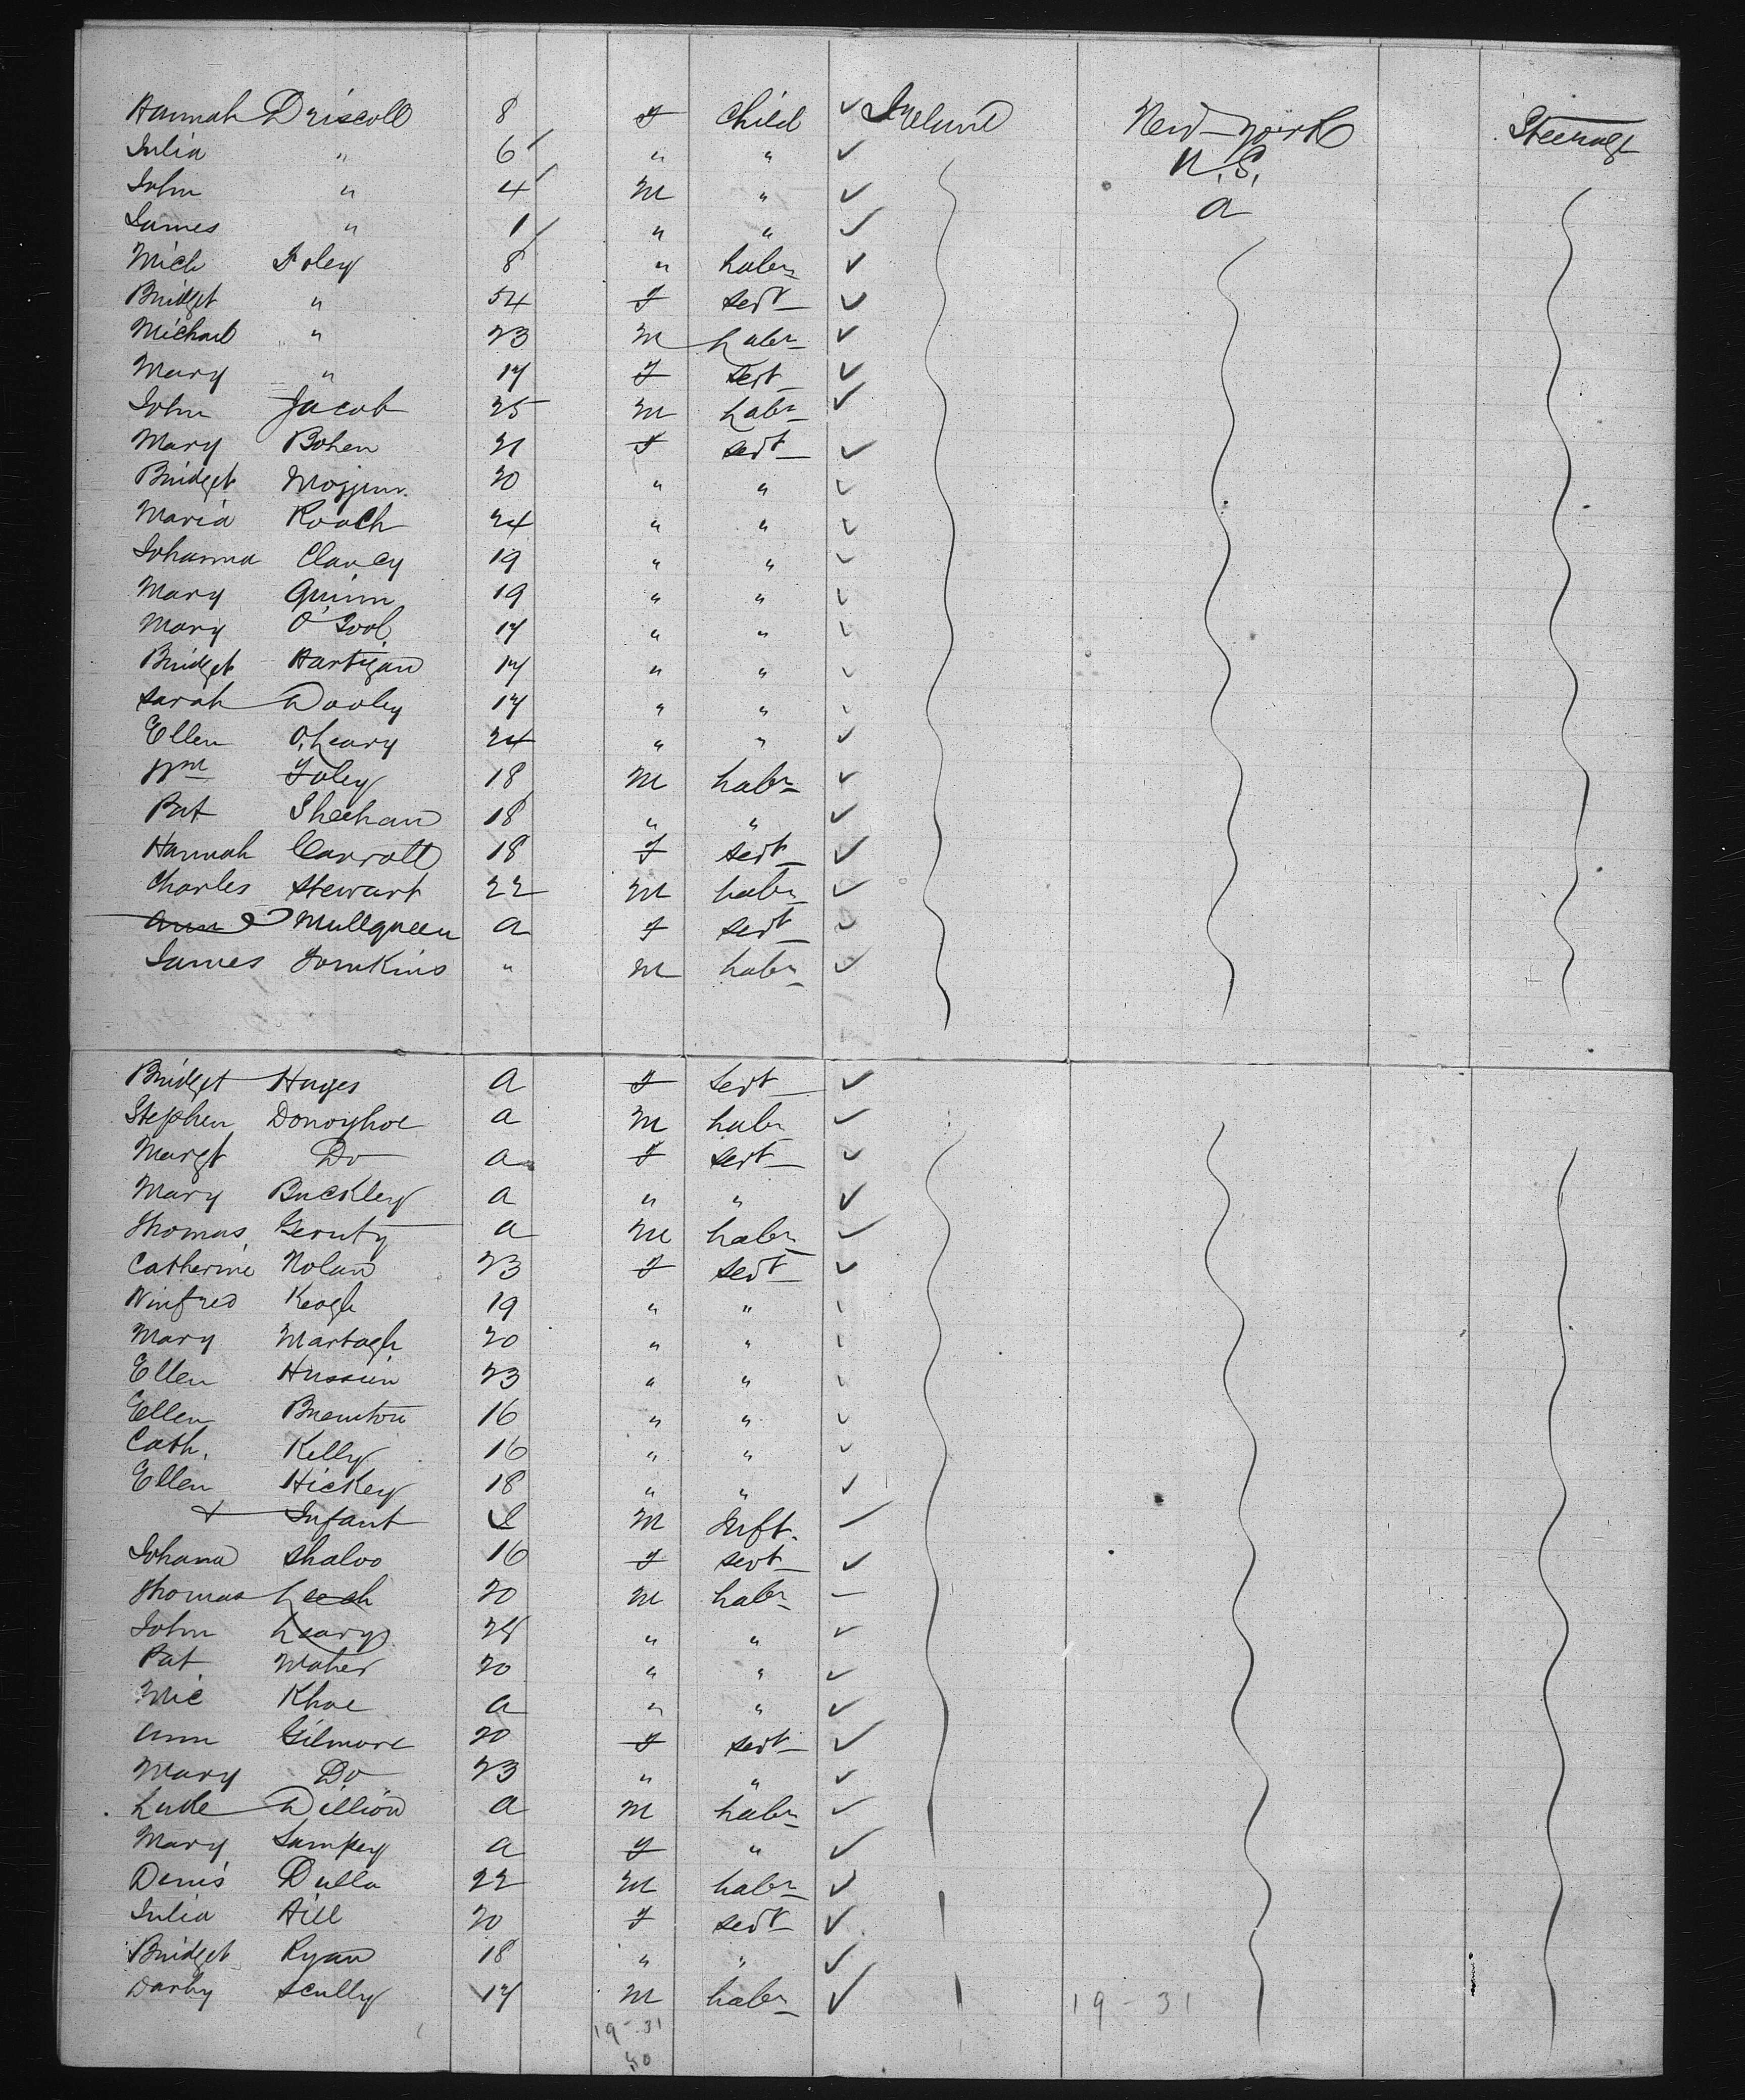 Hannah Driscoll 8 f Child ✓ Ireland New-york Steerage
Julia " 6 " " ✓ U.S.
John " 4 m " ✓ a
James " 1 " " ✓
Mich Foley 8 " Labr ✓
Bridget " 54 f sert ✓
Michael " 23 m Labr ✓
Mary " 17 f sert ✓
John Jacob 25 m Labr ✓
Mary Bohen 21 f sert ✓
Bridget 20 " " ✓
Maria Roach 24 " " ✓
Johanna Clancy 19 " " ✓
Mary Quinn 19 " " ✓
Mary O'Tool 17 " " ✓
Bridget Hartigan 17 " " ✓
Sarah Dooley 17 " " ✓
Ellen O'Leary 24 " " ✓
Wm Foley 18 m Labr ✓
Pat Sheehan 18 " " ✓
Hannah Carroll 18 f sert ✓
Charles Stewart 22 m Labr ✓
Ann Mullqueen a f sert ✓
James Tomkins " m Labr ✓
Bridget Hayes a f sert ✓
Stephen Donoghoe a m Labr ✓
Margt Do a f sert ✓
Mary Buckley a " " ✓
Thomas Geruty a m Labr ✓
Catherine Nolan 23 f sert ✓
Winfred Keogh 19 " " ✓
Mary Martagh 20 " " ✓
Ellen Hussien 23 " " ✓
Ellen 16 " " ✓
Cath. Kelly 16 " " ✓
Ellen Hickey 18 " " ✓
+ Infant m Inft.
Johana Shaloo 16 f sert ✓
Thomas Leech 20 m Labr –
John Leary 28 " " ✓
Pat Maher 20 " " ✓
Mic Khoe a " " ✓
Ann Gilmore 20 f sert ✓
Mary Do 23 " " ✓
Luke Dillion a m Labr ✓
Mary Lampey a f " ✓
Denis Dulla 22 m Labr ✓
Julia Hill 20 f sert ✓
Bridget Ryan 18 " " ✓
Darby Scully 17 m Labr ✓ 19-31
19-31
50